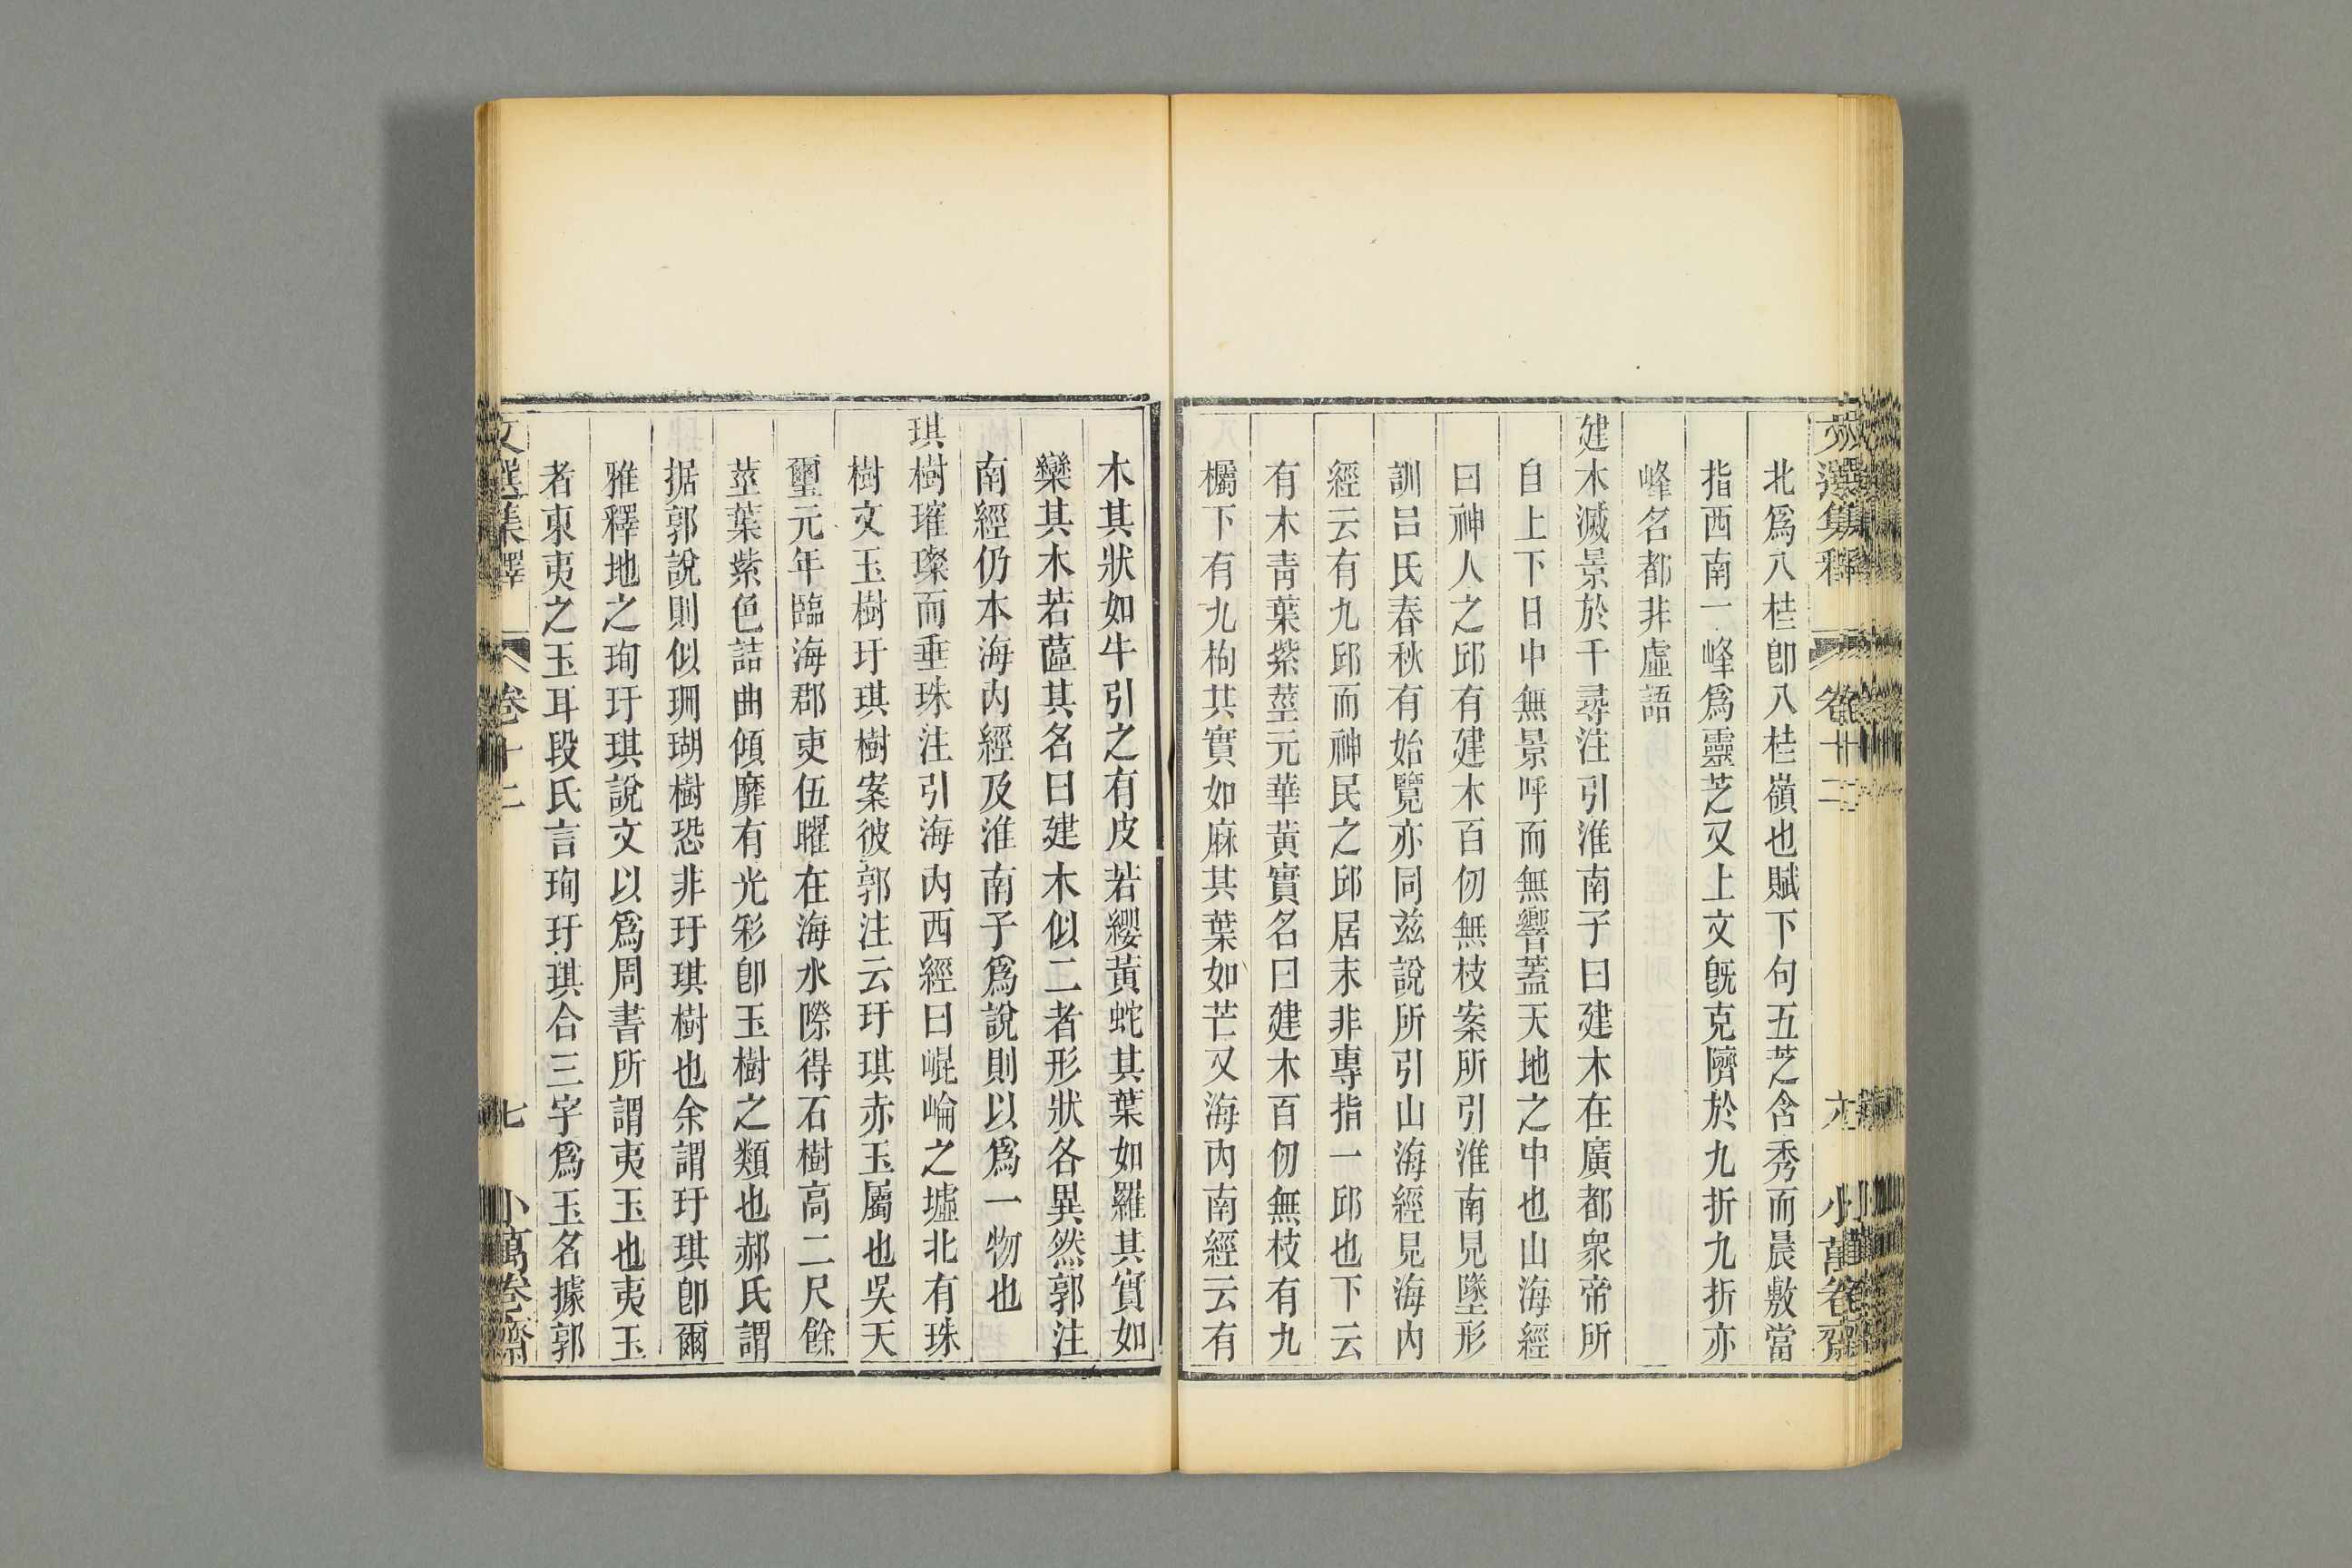 文選集釋 卷十二 六 小萬卷齋
北爲八桂卽八桂嶺也賦下句五芝含秀而晨敷當
指西南一峰爲靈芝又上文旣克隮於九折九折亦
峰名都非虛語
建木滅景於千尋注引淮南子曰建木在廣都衆帝所
自上下日中無景呼而無響蓋天地之中也山海經
曰神人之邱有建木百仞無枝案所引淮南見墬形
訓呂氏春秋有始覽亦同兹說所引山海經見海內
經云有九邱而神民之邱居末非專指一邱也下云
有木靑葉紫莖元華黃實名曰建木百仞無枝有九
欘下有九枸其實如麻其葉如芒又海內南經云有
木其狀如牛引之有皮若纓黃蛇其葉如羅其實如
欒其木若蓲其名曰建木似二者形狀各異然郭注
南經仍本海內經及淮南子爲說則以爲一物也
琪樹璀璨而垂珠注引海內西經曰崐崘之墟北有珠
樹文玉樹玗琪樹案彼郭注云玗琪赤玉屬也吳天
璽元年臨海郡吏伍曜在海水際得石樹高二尺餘
莖葉紫色詰曲傾靡有光彩卽玉樹之類也郝氏謂
据郭說則似珊瑚樹恐非玗琪樹也余謂玗琪卽爾
雅釋地之珣玗琪說文以爲周書所謂夷玉也夷玉
者東夷之玉耳段氏言珣玗琪合三字爲玉名據郭
文選集釋 卷十二 七 小萬卷齋